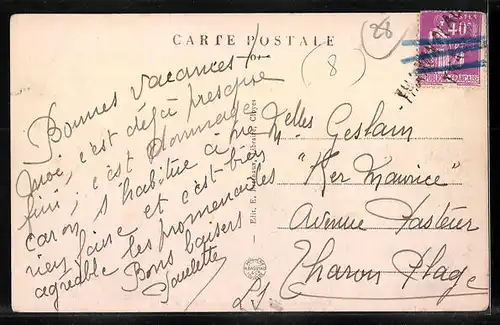 CARTE POSTALE
28
(8)
40c
Bonnes vacances !
moi, c'est déjà presque
fini ; c'est dommage
car on s'habitue à ne
rien faire et c'est bien
agréable les promenades
Bons baisers
Paulette
Melles Geslain
"Ker Maurice"
Avenue Pasteur
Tharon Plage
Edit. E. Libraire, Cloyes